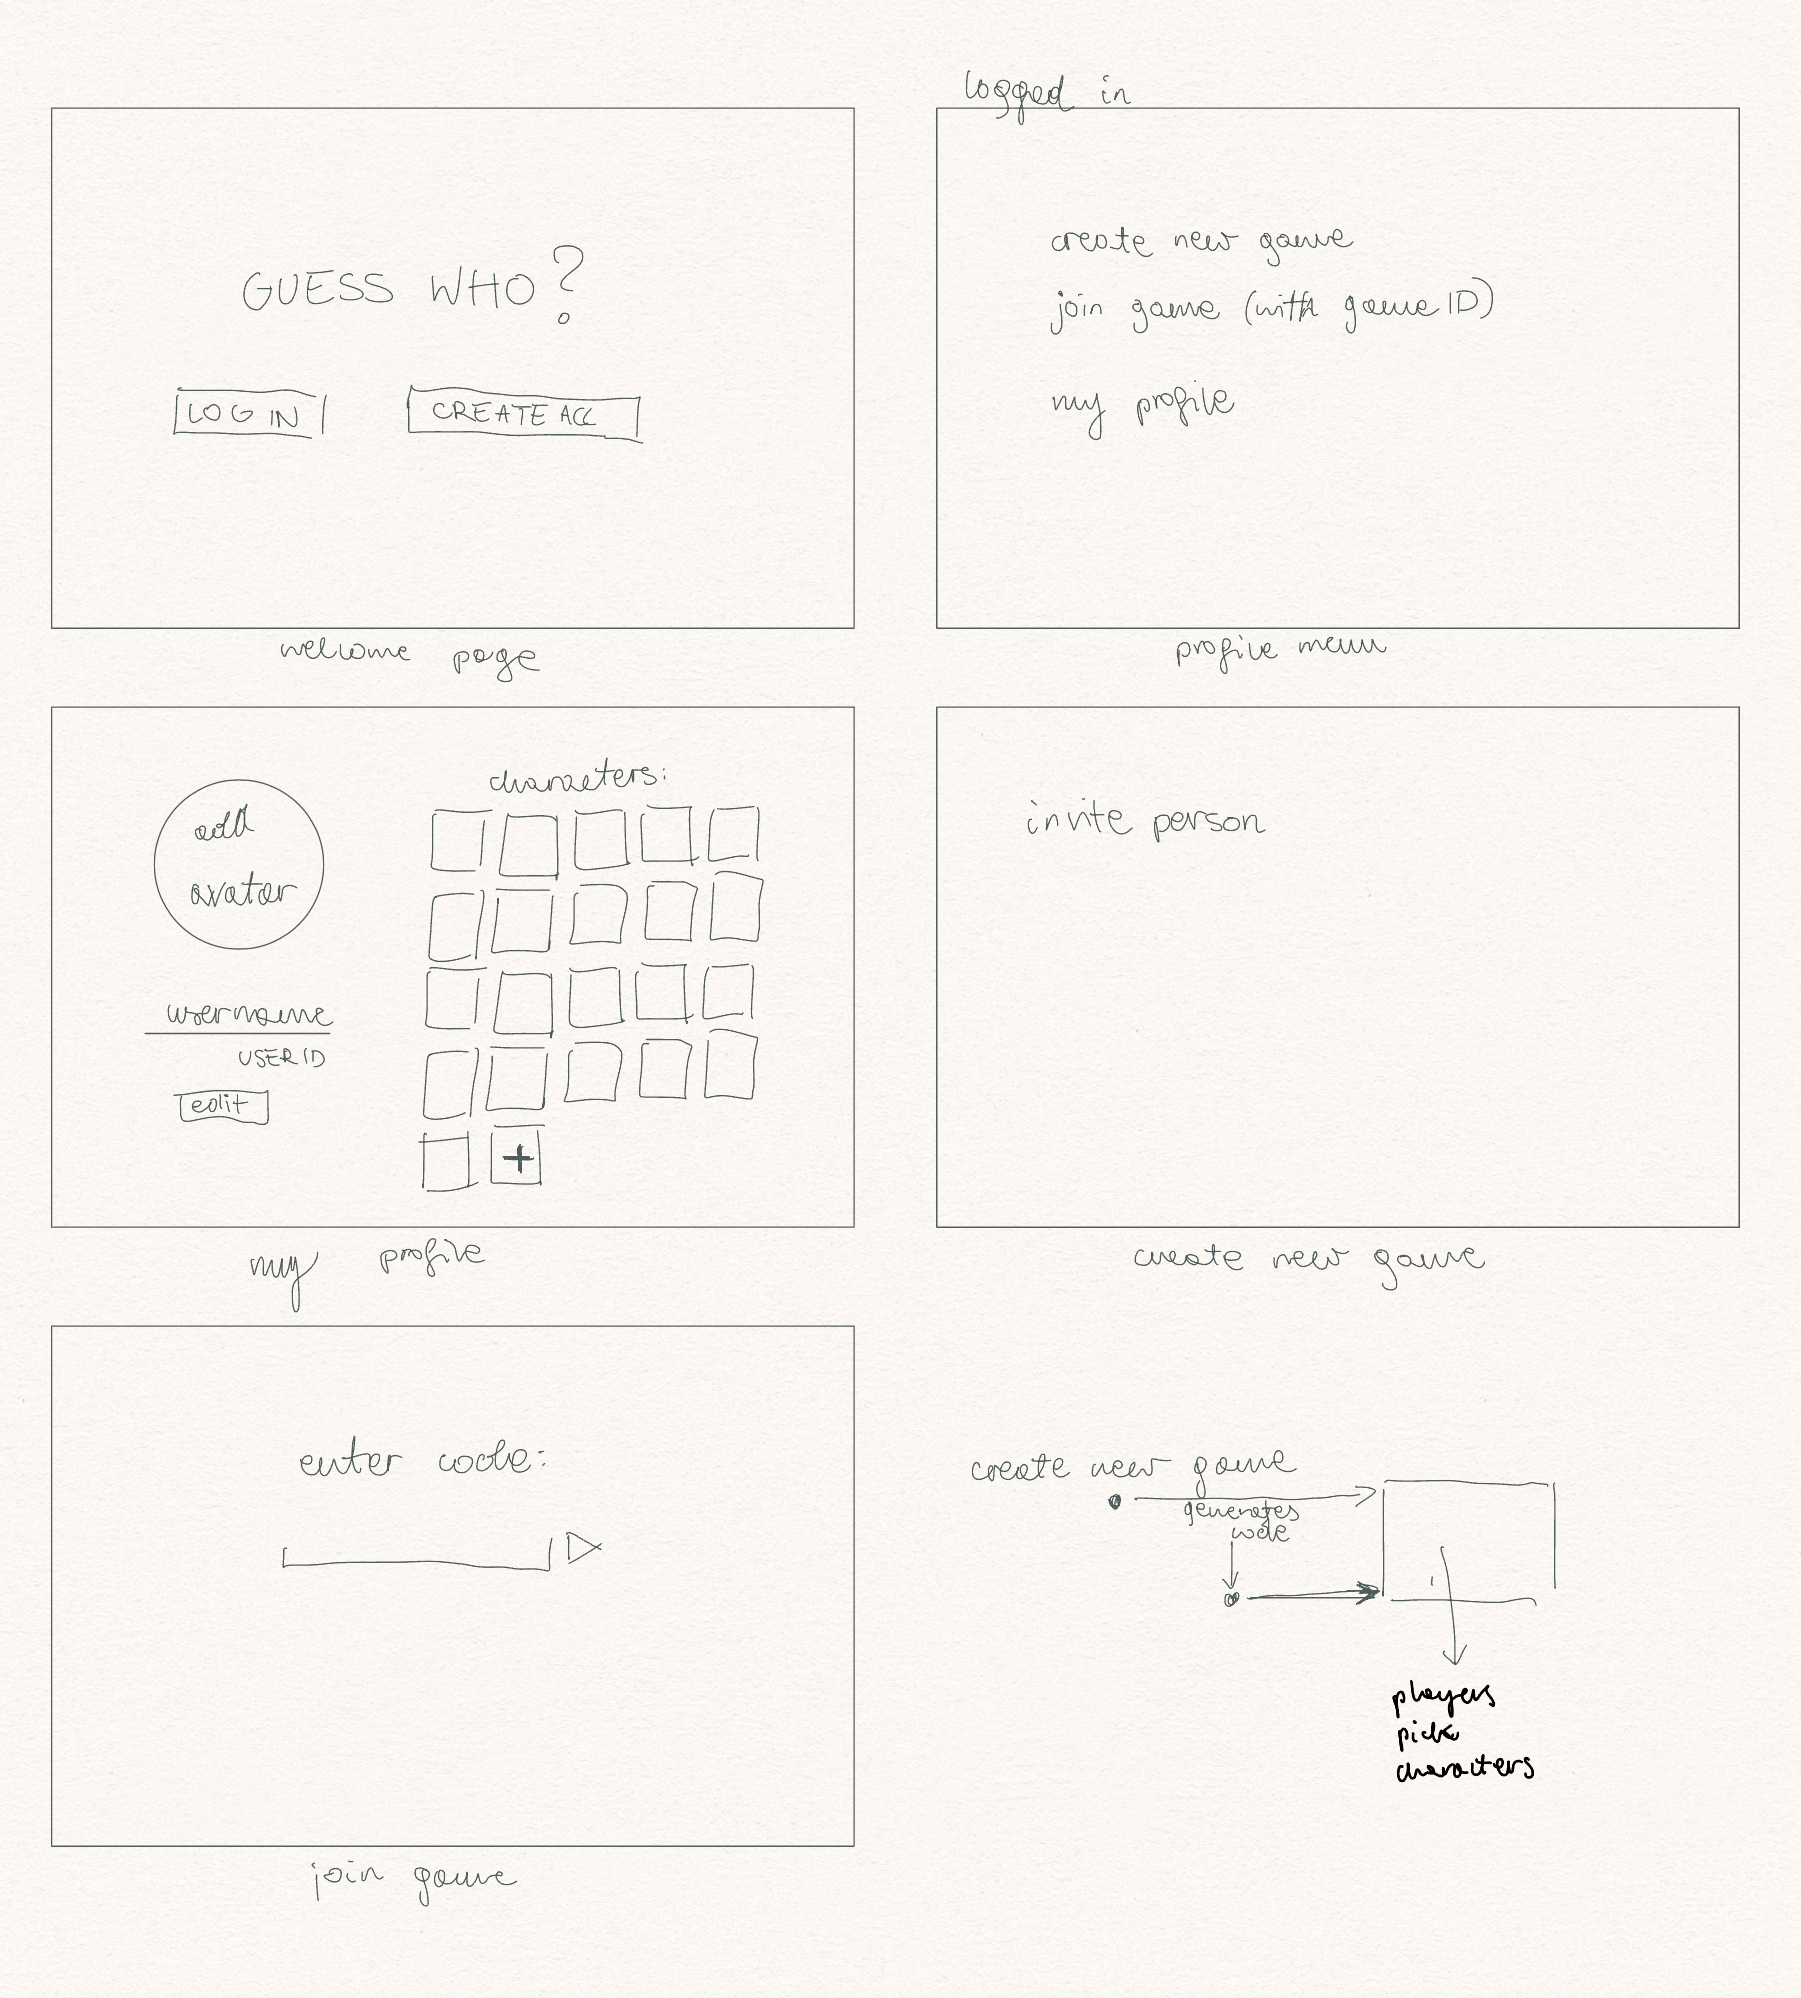 GUESS WHO?
LOG IN
CREATE ACC
welcome page
logged in
create new game
join game (with game ID)
my profile
profile menu
add
avatar
username
USER ID
edit
characters:
+
my profile
invite person
create new game
enter code:
join game
create new game
generates
code
players
pick
characters